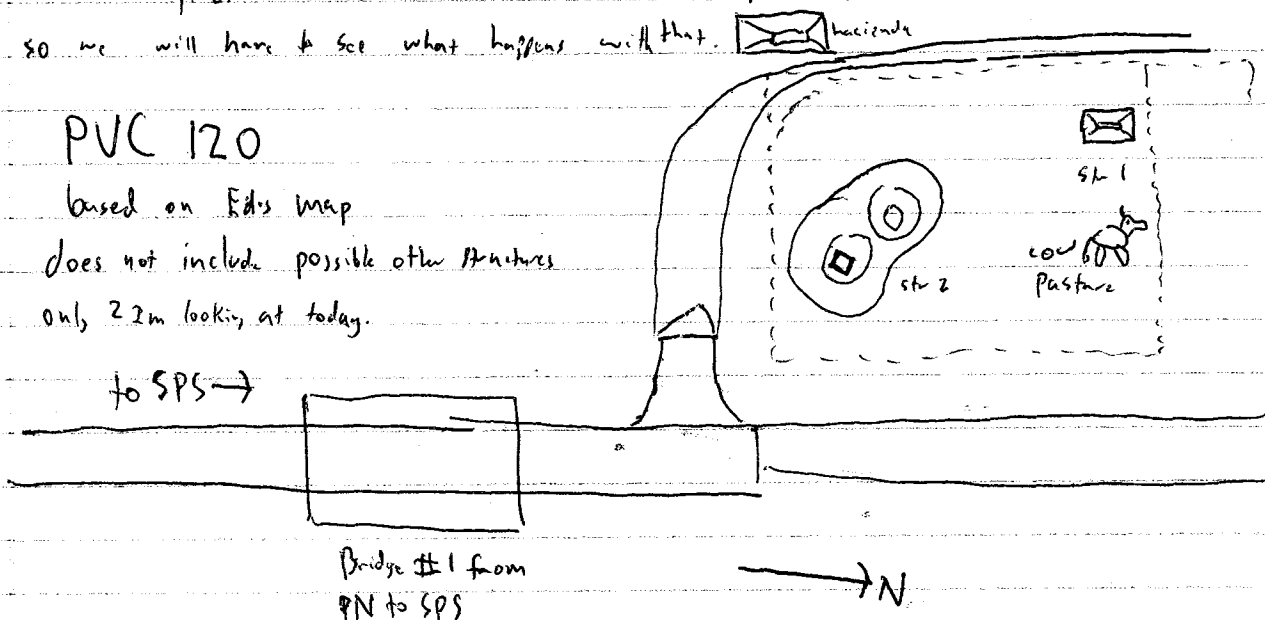 so we will have to see what happens with that.
hacienda
PVC 120
based on Ed's map
does not include possible other structures
only 2 I'm looking at today.
to SPS →
str 1
str 2
cow
pasture
Bridge #1 from
PN to SPS
N